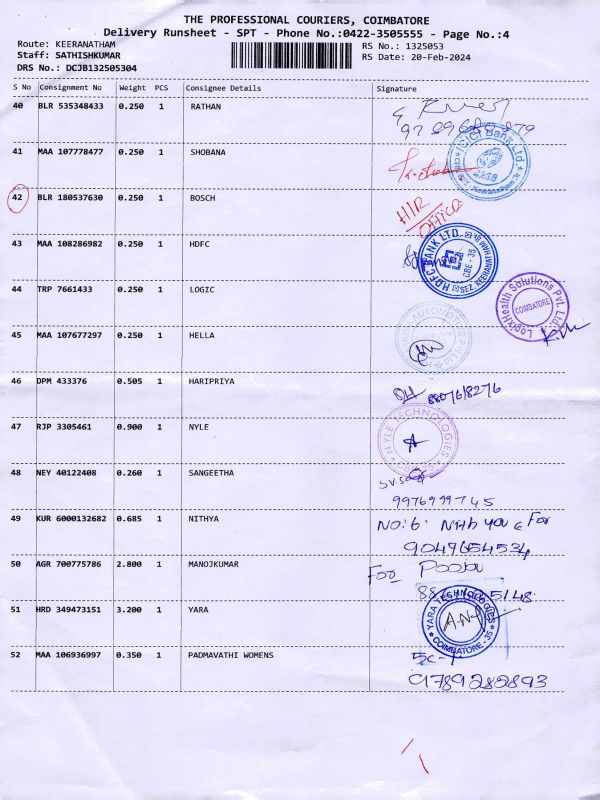 THE PROFESSIONAL COURIERS, COIMBATORE
Delivery Runsheet - SPT - Phone No.:0422-3505555 - Page No.:4
Route: KEERANATHAM
RS No.: 1325053
Staff: SATHISHKUMAR
RS Date: 20-Feb-2024
DRS No.: DCJB132505304
S No Consignment No Weight PCS Consignee Details Signature
40 BLR 535348433 0.250 1 RATHAN
41 MAA 107778477 0.250 1 SHOBANA
ICICI Bank Ltd.
42 BLR 180537630 0.250 1 BOSCH
H/R
OFFICE
43 MAA 108286982 0.250 1 HDFC
HDFC BANK LTD.
CBE-35
44 TRP 7661433 0.250 1 LOGIC
LogixHealth Solutions Pvt. Ltd.
COIMBATORE
45 MAA 107677297 0.250 1 HELLA
46 DPM 433376 0.505 1 HARIPRIYA
8807618276
47 RJP 3305461 0.900 1 NYLE
NYLE TECHNOLOGIES
48 NEY 40122408 0.260 1 SANGEETHA
9976999745
49 KUR 6000132682 0.685 1 NITHYA
NO: 6. For
9047654534
50 AGR 700775786 2.800 1 MANOJKUMAR
For Pooja
51 HRD 349473151 3.200 1 YARA
YARA TECHNOLOGIES
COIMBATORE - 35
52 MAA 106936997 0.350 1 PADMAVATHI WOMENS
9789282893